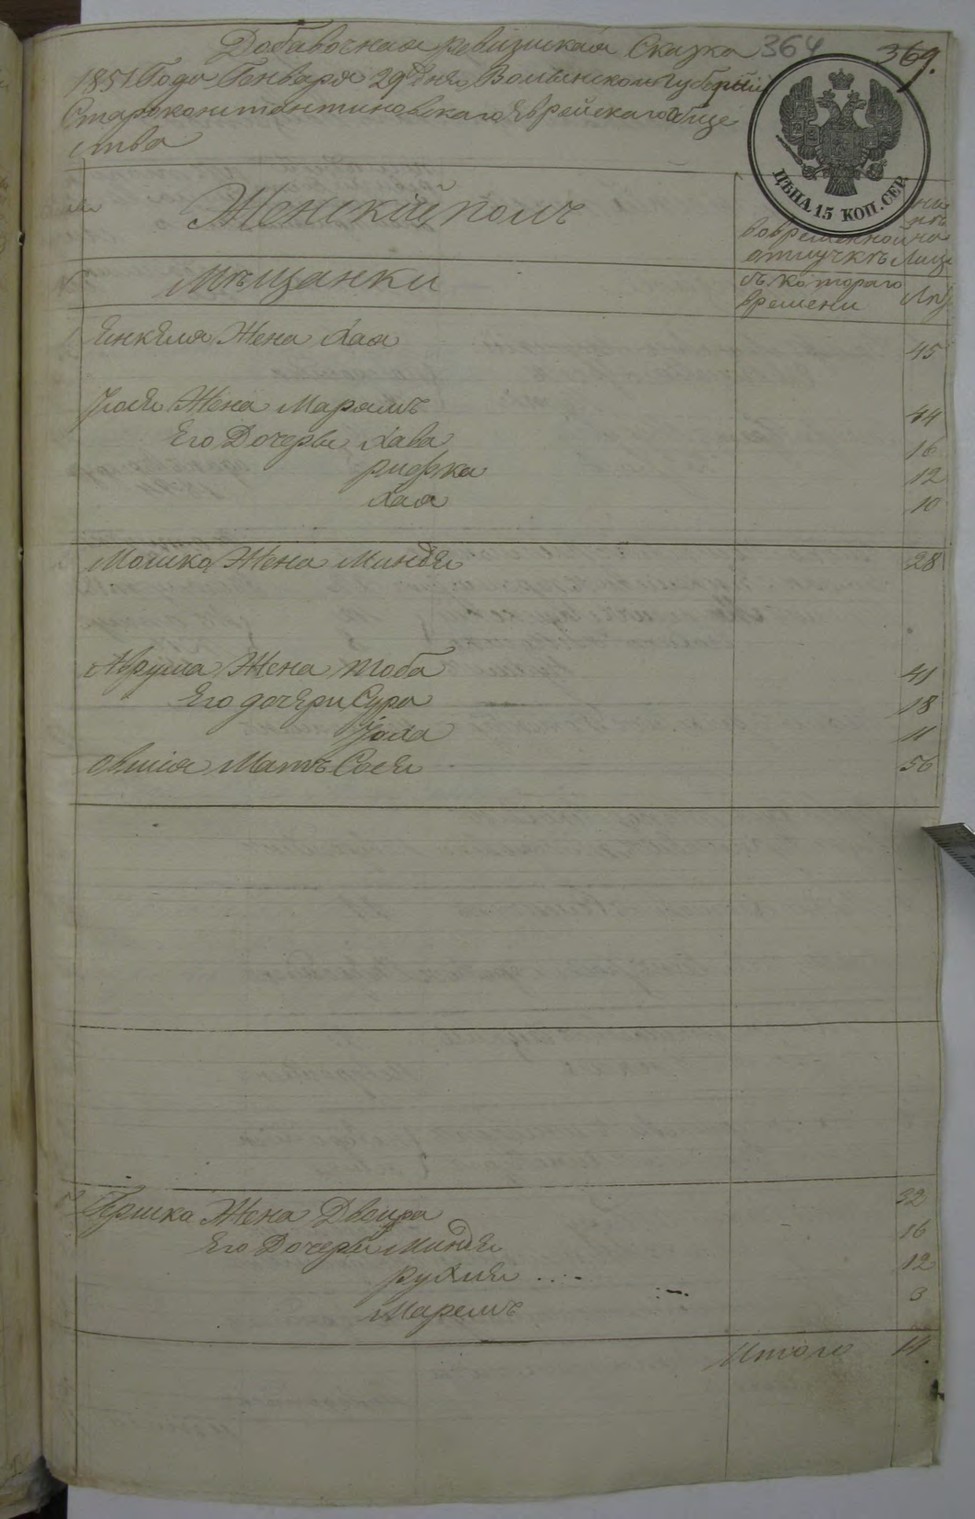 Добавочная ревизиская Сказка 364 369.
1851 Года Генваря 29 Дня Волынской Губернии
Староконстантиновскаго Еврейскаго Обще
ства
ЦѢНА 15 КОП. СЕР.
Женский полъ
во временной
отлучкѣ
на
Лице
Мѣщанки
съ котораго
времени
Лѣ
Енкеля Жена Хая 45
Жена Марямъ 44
Его Дочерьи Хава 16
Рифка 12
Хая 10
Мошка Жена Миндя 28
Аврума Жена Тоба 41
Его дочери Сура 18
11
Мать Сося 56
Гершка Жена Двойра 32
Его Дочерьи Миндя 16
Рухля 12
Маремъ 3
Итого 14